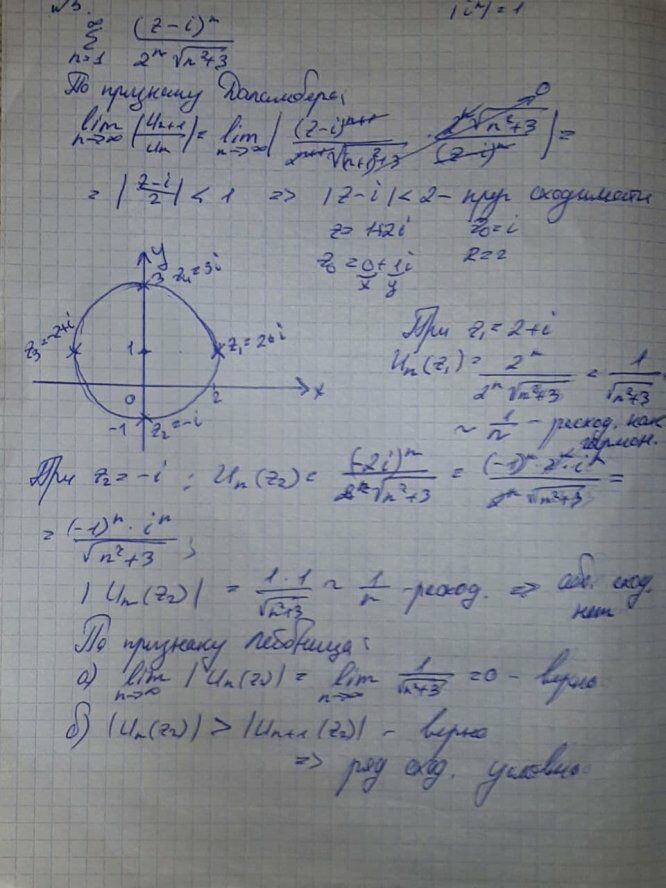 √3.
|iⁿ| = 1
∞ Σ n=1 (z-i)ⁿ / 2ⁿ √n²+3
По признаку Даламбера:
lim n→∞ |Un+1 / Un| = lim n→∞ | (z-i)ⁿ⁺¹ / 2ⁿ⁺¹ √n²+3 · 2ⁿ √n²+3 / (z-i)ⁿ | =
0
= | z-i / 2 | < 1 ⇒ |z-i| < 2 - круг сходимости
z = 1+2i z₀ = i
z₀ = 0 + 1i R = 2
x y
y
3 z₄ = 3i
z₃ = -2+i 1 z₁ = 2+i
0 2 x
-1 z₂ = -i
При z₁ = 2+i
Un(z₁) = 2ⁿ / 2ⁿ √n²+3 = 1 / √n²+3
~ 1/n - расход. как
гармон.
При z₂ = -i ; Un(z₂) = (-2i)ⁿ / 2ⁿ √n²+3 = (-1)ⁿ · 2ⁿ · iⁿ / 2ⁿ √n²+3 =
= (-1)ⁿ · iⁿ / √n²+3 ;
|Un(z₂)| = 1·1 / √n²+3 ~ 1/n - расход. ⇒ абс. сход.
нет
По признаку Лейбница:
а) lim n→∞ |Un(z₂)| = lim n→∞ 1 / √n²+3 = 0 - верно
б) |Un(z₂)| > |Un+1(z₂)| - верно
⇒ ряд сход. условно